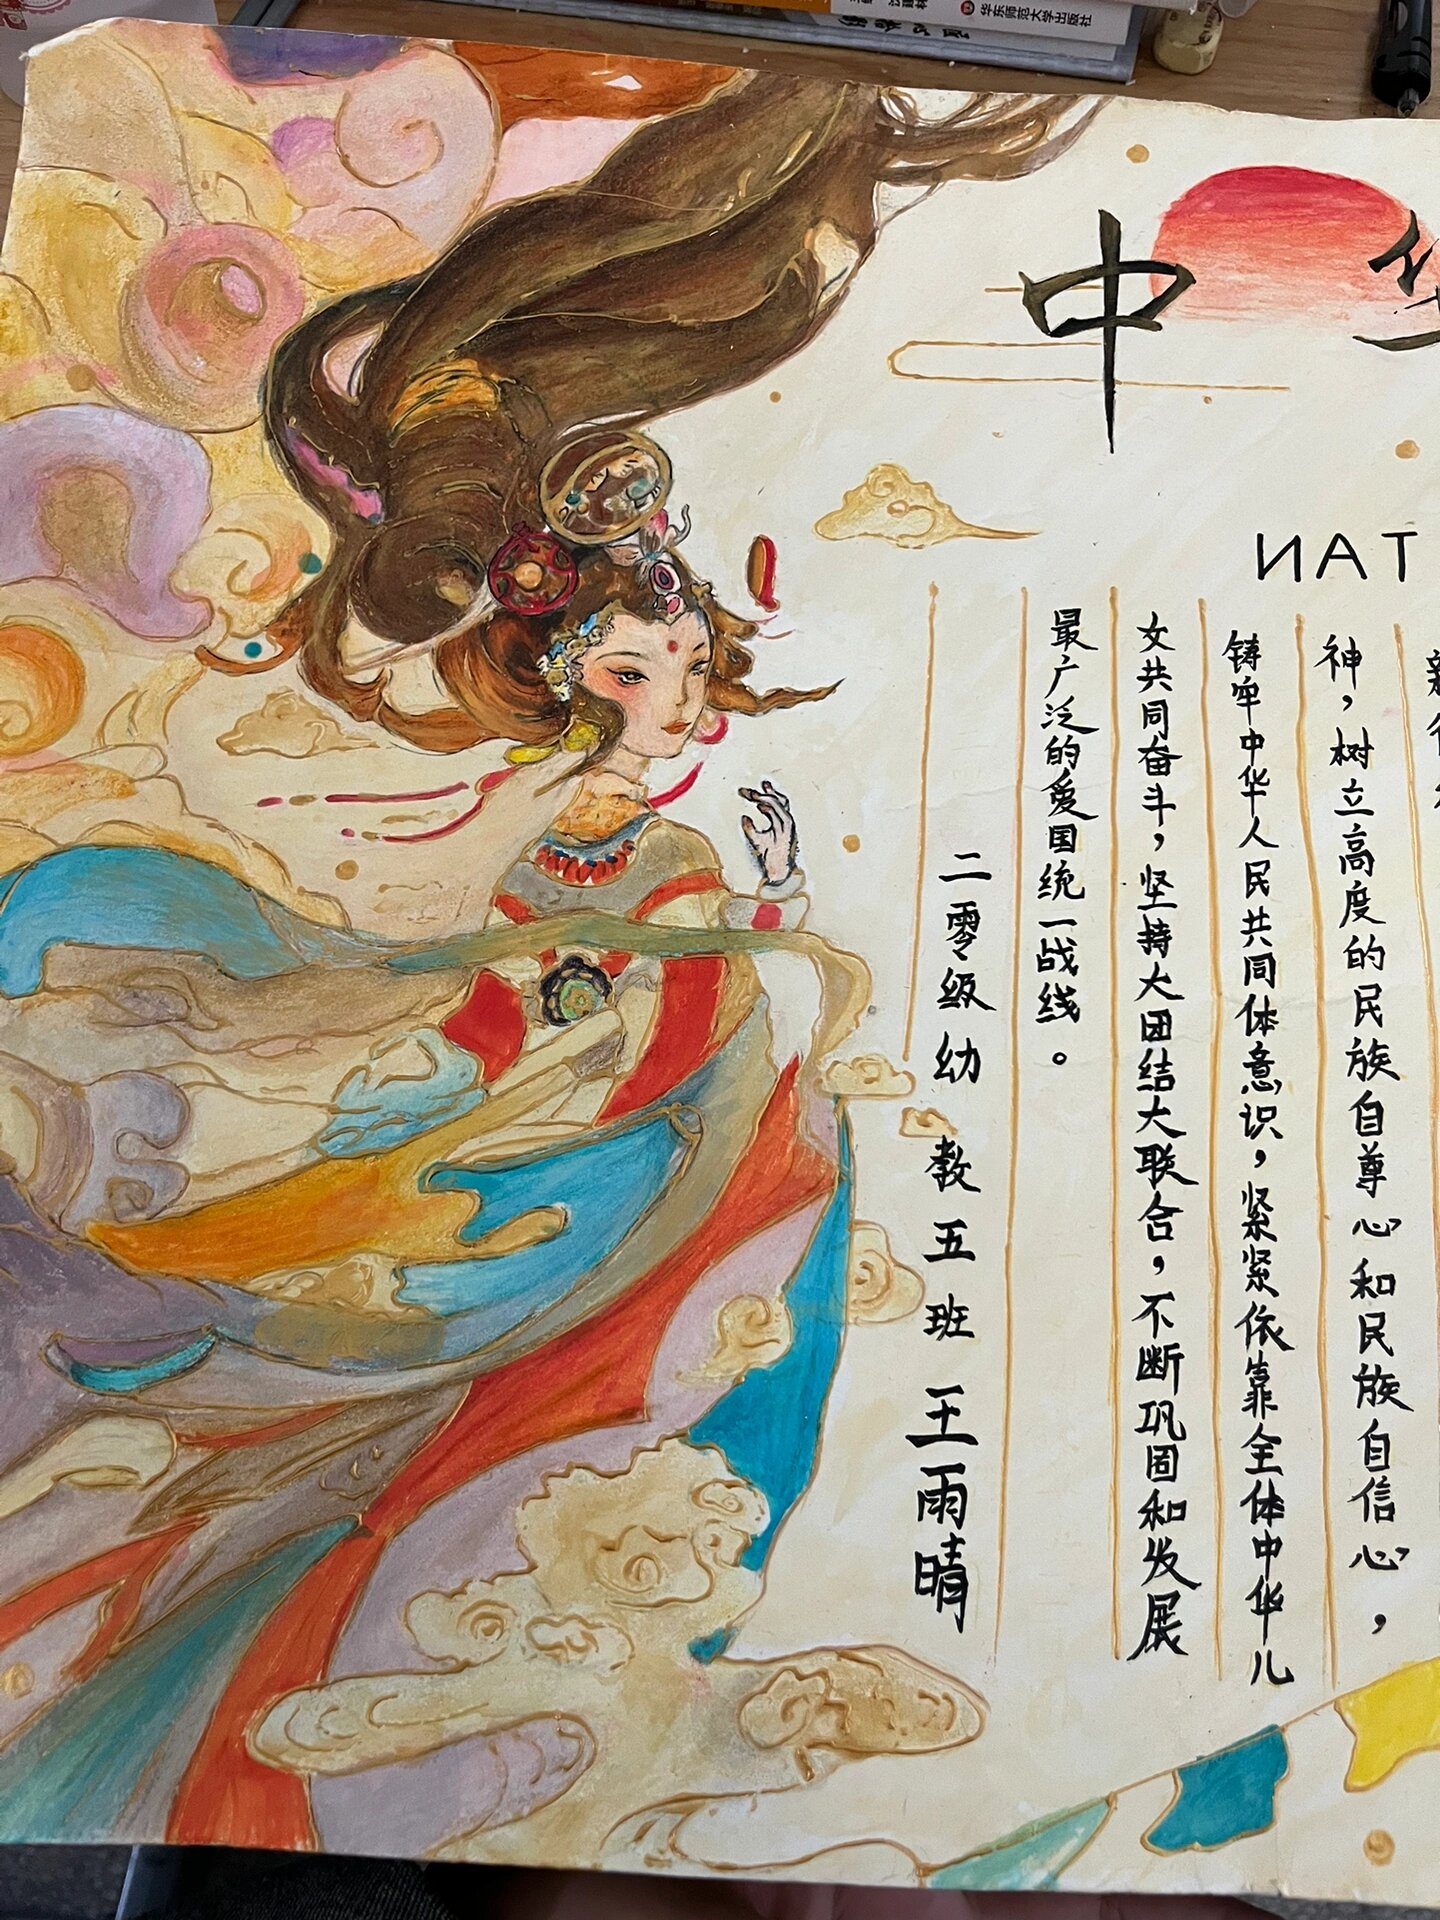 华东师范大学出版社
中华
NAT
神，树立高度的民族自尊心和民族自信心，
铸牢中华人民共同体意识，紧紧依靠全体中华儿
女共同奋斗，坚持大团结大联合，不断巩固和发展
最广泛的爱国统一战线。
二零级幼教五班王雨晴